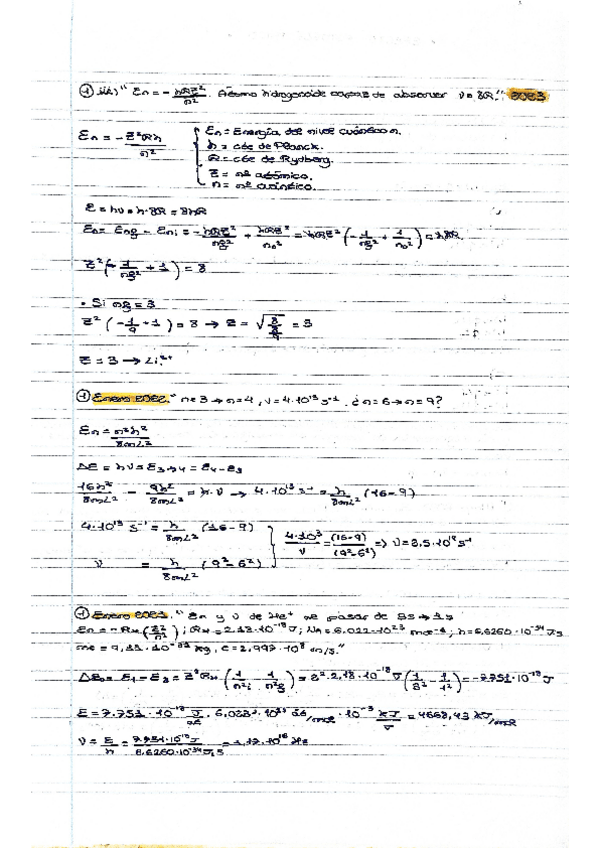 ① iii) " En = - hRZ²/n². Átomo hidrogenoide capaz de absorver ν = 8R." 2023
En = - Z²Rh/n² { En = Energía del nivel cuántico n.
h = cte de Planck.
R = cte de Rydberg.
Z = nº atómico.
n = nº cuántico.
E = hν = h·8R = 8hR
En = Enf - Eni = - hRZ²/nf² + hRZ²/no² = hRZ² (- 1/nf² + 1/no²) = h8R
Z² (- 1/nf² + 1) = 8
• Si nf = 3
Z² (- 1/9 + 1) = 8 → Z = √(8/(8/9)) = 3
Z = 3 → Li²⁺
① Enero 2022. " n=3 → n=4, ν = 4·10¹³ s⁻¹. ¿n=6 → n=9?
En = n²h²/8mL²
ΔE = hν = E3→4 = E4 - E3
16h²/8mL² - 9h²/8mL² = h·ν → 4·10¹³ s⁻¹ = h/8mL² (16-9)
4·10¹³ s⁻¹ = h/8mL² (16-9)
ν = h/8mL² (9²-6²) } 4·10¹³/ν = (16-9)/(9²-6²) ⇒ ν = 2.5·10¹⁴ s⁻¹
① Enero 2021. " En y ν de He⁺ al pasar de 3s → 1s
En = - RH (Z²/n²); RH = 2.18·10⁻¹⁸ J; NA = 6.022·10²³ mol⁻¹; h = 6,6260·10⁻³⁴ J·s
me = 9,11·10⁻³¹ kg, c = 2,997·10⁸ m/s."
ΔE = E1 - E3 = Z²RH (1/n²i - 1/n²f) = 2²·2,18·10⁻¹⁸ J (1/3² - 1/1²) = -7.751·10⁻¹⁸ J
E = 7.751·10⁻¹⁸ J/at · 6.022·10²³ at/mol · 10⁻³ kJ/J = 4668,43 kJ/mol
ν = E/h = 7.751·10⁻¹⁸ J/6.6260·10⁻³⁴ J·s = 1.17·10¹⁶ Hz